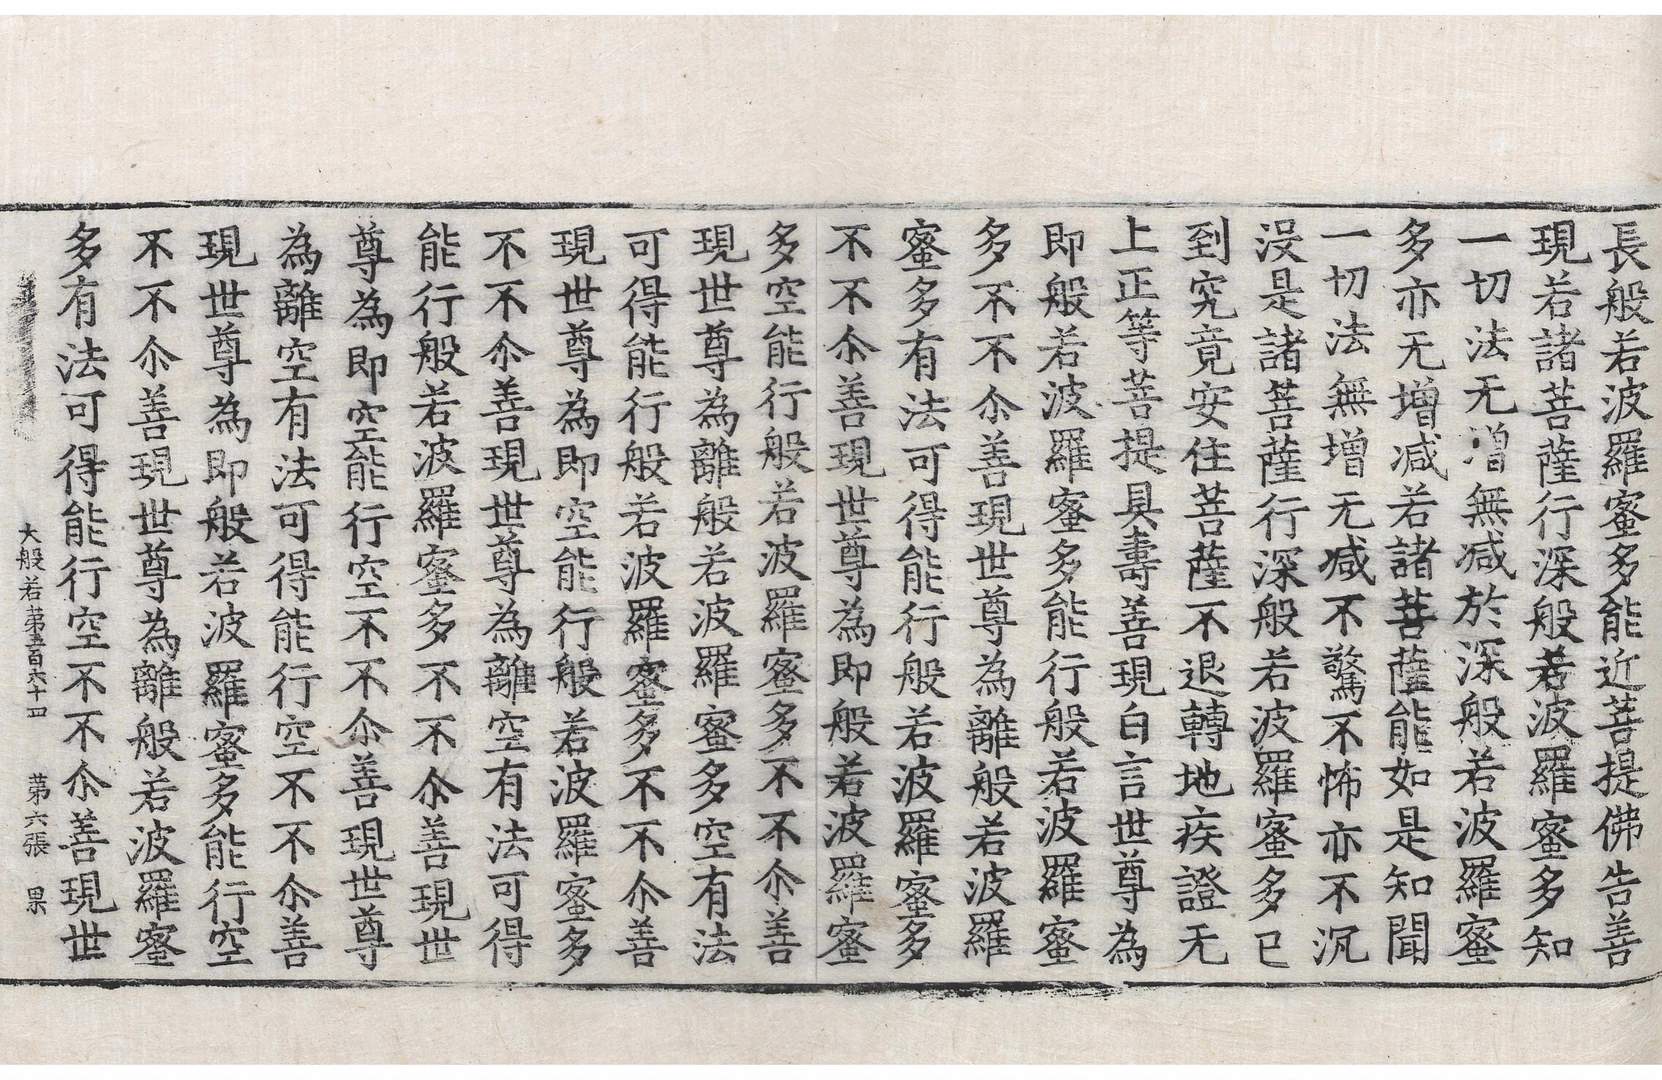 長般若波羅蜜多能近菩提佛告善
現若諸菩薩行深般若波羅蜜多知
一切法无增無减於深般若波羅蜜
多亦无增减若諸菩薩能如是知聞
一切法無增无减不驚不怖亦不沉
没是諸菩薩行深般若波羅蜜多已
到究竟安住菩薩不退轉地疾證无
上正等菩提具壽善現白言世尊為
即般若波羅蜜多能行般若波羅蜜
多不不尒善現世尊為離般若波羅
蜜多有法可得能行般若波羅蜜多
不不尒善現世尊為即般若波羅蜜
多空能行般若波羅蜜多不不尒善
現世尊為離般若波羅蜜多空有法
可得能行般若波羅蜜多不不尒善
現世尊為即空能行般若波羅蜜多
不不尒善現世尊為離空有法可得
能行般若波羅蜜多不不尒善現世
尊為即空能行空不不尒善現世尊
為離空有法可得能行空不不尒善
現世尊為即般若波羅蜜多能行空
不不尒善現世尊為離般若波羅蜜
多有法可得能行空不不尒善現世
大般若第五百六十四 第六張 果